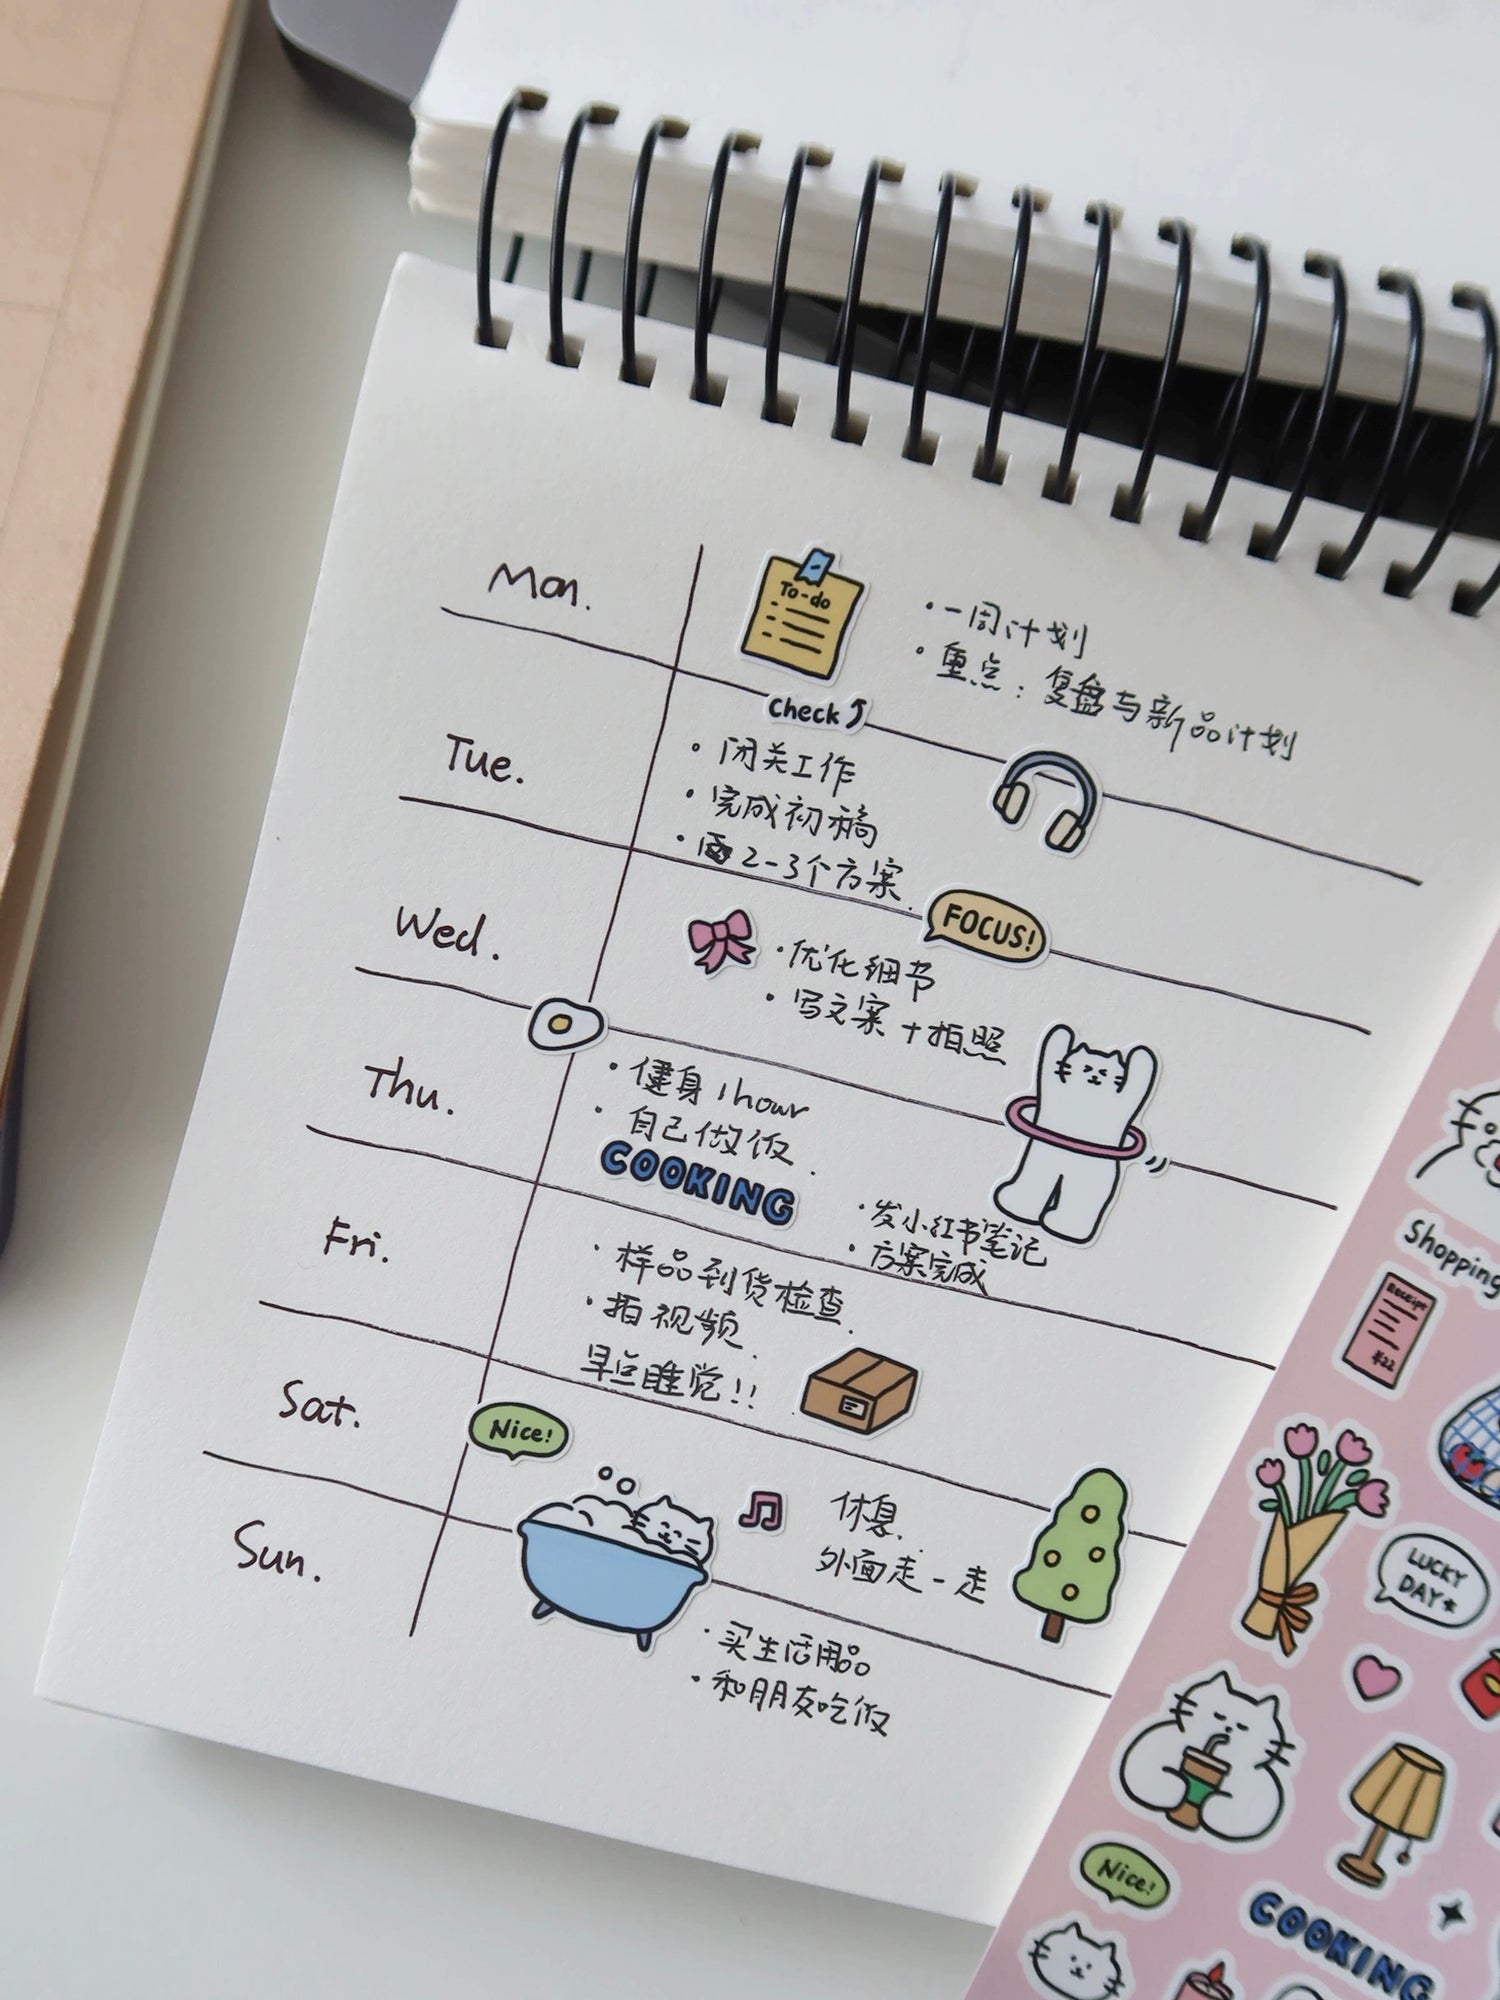 Mon.
To-do
· 一周计划
· 重点：复盘与新品计划
check
Tue.
· 闭关工作
· 完成初稿
· 2-3个方案.
FOCUS!
Wed.
· 优化细节
· 写文案+拍照
Thu.
· 健身1hour
· 自己做饭.
COOKING
· 发小红书笔记
· 方案完成
Fri.
· 样品到货检查.
· 拍视频.
早点睡觉!!
Sat.
Nice!
休息.
外面走一走
Sun.
· 买生活用品
· 和朋友吃饭
Shopping
Receipt
¥22
LUCKY
DAY
Nice!
COOKING